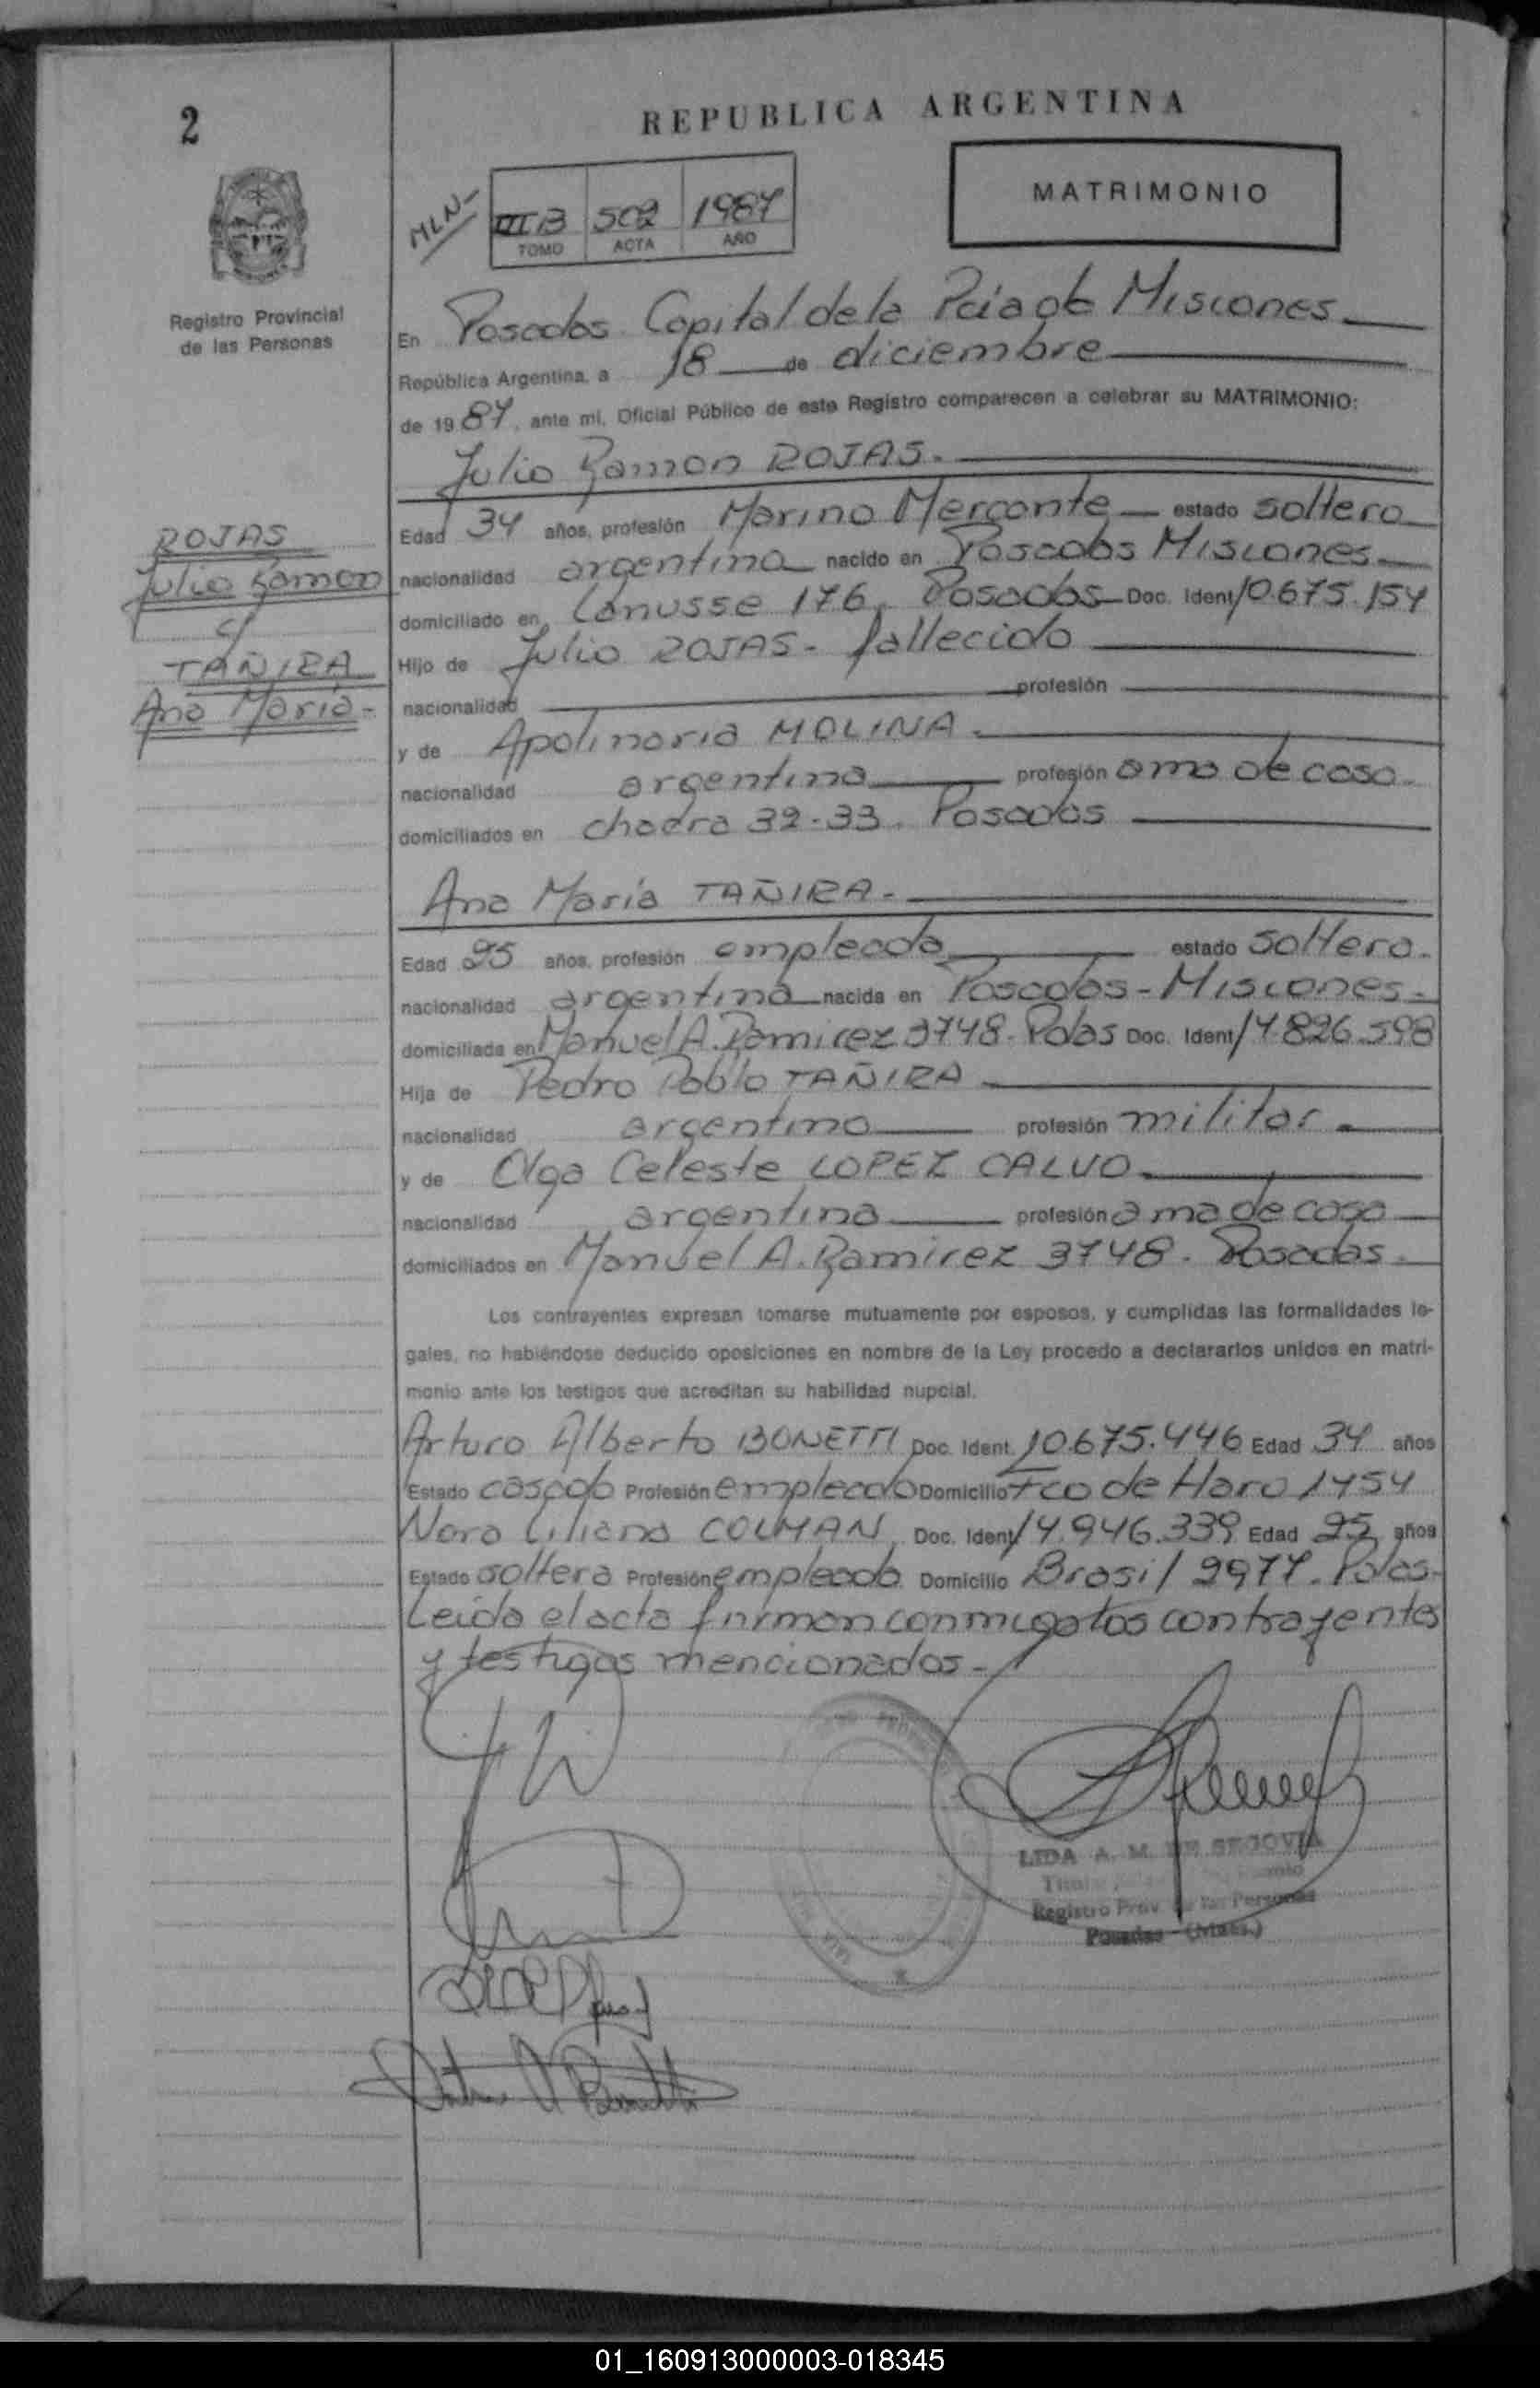 2
REPUBLICA ARGENTINA
MLN-
III B 502 1987
TOMO ACTA AÑO
MATRIMONIO
Registro Provincial
de las Personas
En Posadas Capital de la Pcia de Misiones
República Argentina, a 18 de diciembre
de 1987, ante mi, Oficial Público de este Registro comparecen a celebrar su MATRIMONIO:
Julio Ramon ROJAS.
ROJAS
Julio Ramon
c/
TAÑIRA
Ana Maria-
Edad 34 años, profesión Marino Mercante estado soltero
nacionalidad argentina nacido en Posadas Misiones
domiciliado en Lanusse 176, Posadas Doc. Ident 10.675.154
Hijo de Julio ROJAS- fallecido
nacionalidad profesión
y de Apolinaria MOLINA.
nacionalidad argentina profesión ama de casa.
domiciliados en chacra 32-33. Posadas
Ana Maria TAÑIRA.
Edad 25 años, profesión empleada estado soltera.
nacionalidad argentina nacida en Posadas-Misiones.
domiciliada en Manuel A. Ramirez 3748. Pdas Doc. Ident 14.826.598
Hija de Pedro Pablo TAÑIRA
nacionalidad argentino profesión militar.
y de Olga Celeste LOPEZ CALVO.
nacionalidad argentina profesión ama de casa
domiciliados en Manuel A. Ramirez 3748. Posadas.
Los contrayentes expresan tomarse mutuamente por esposos, y cumplidas las formalidades le-
gales, no habiéndose deducido oposiciones en nombre de la Ley procedo a declararlos unidos en matri-
monio ante los testigos que acreditan su habilidad nupcial.
Arturo Alberto BONETTI Doc. Ident. 10.675.446 Edad 34 años
Estado casado Profesión empleado Domicilio Fco de Haro 1454
Nora Liliana COLMAN, Doc. Ident 14.946.339 Edad 25 años
Estado soltera Profesión empleada Domicilio Brasil 2977. Pdas.
Leida el acta firman conmigo los contrayentes
y testigos mencionados-
LIDA A. M. DE SEGOVIA
Registro Prov. de las Personas
Posadas (Mnes.)
01_160913000003-018345